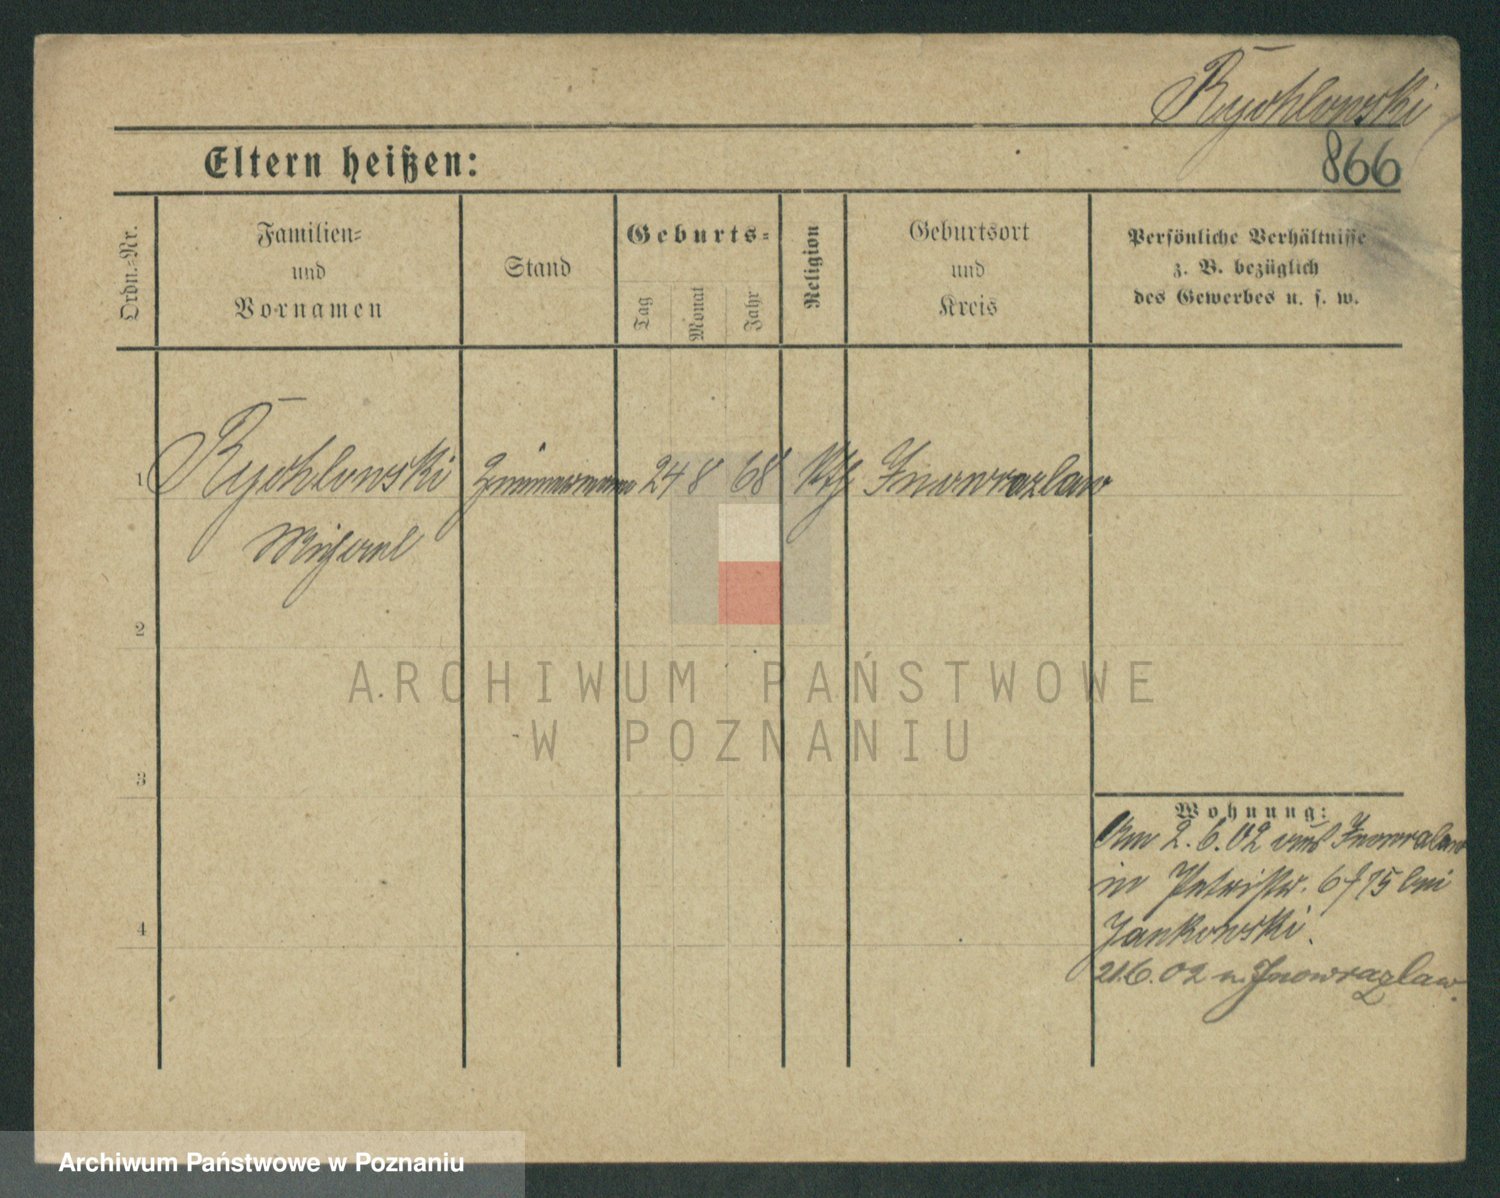 Rychlowski
866
Eltern heißen:
Ordn.-Nr.
Familien-
und
Vornamen
Stand
Geburts-
Tag
Monat
Jahr
Religion
Geburtsort
und
Kreis
Persönliche Verhältnisse
z. B. bezüglich
des Gewerbes u. s. w.
1 Rychlowski Zimmermann 24 8 68 Kth Inowrazlaw
Michael
2
3
4
Wohnung:
Am 2.6.02 aus Inowrazlaw
in Petristr. 6 bei
Jankowski.
21.6.02 n. Inowrazlaw.
ARCHIWUM PAŃSTWOWE
W POZNANIU
Archiwum Państwowe w Poznaniu